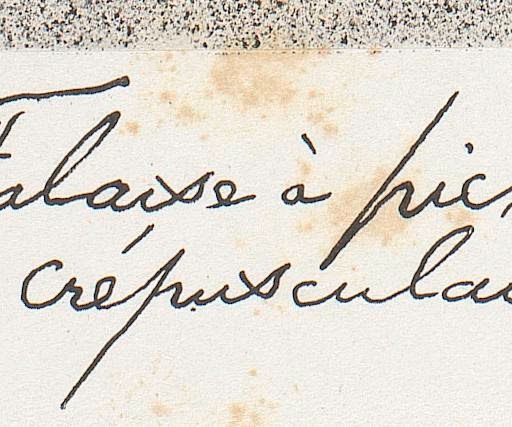 Falaise à pic,
crépusculai